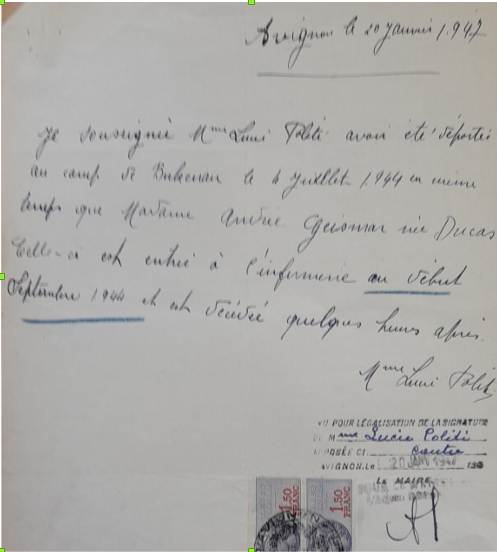 Avignon le 20 Janvier 1947
Je soussignée Mme Luni Politi avoir été déportée
au camp de Bukenau le 4 Juillet 1944 en même
temps que Madame André Geismar née Ducas
Celle-ci est entrée à l'infirmerie au début
Septembre 1944 et est décédé quelques heures après.
Mme Luni Politi
VU POUR LÉGALISATION DE LA SIGNATURE
DE Mme Lucie Politi
APPOSÉE CI contre
AVIGNON, Le 20 JAN 194
LE MAIRE
1,50 FRANC
1,50 FRANC
AVIGNON